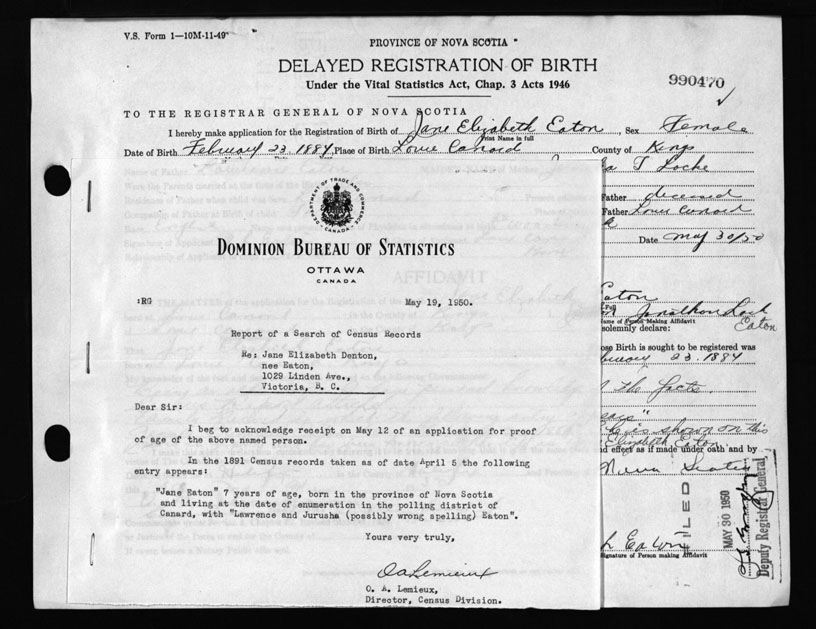 V.S. Form 1—10M-11-49
PROVINCE OF NOVA SCOTIA
DELAYED REGISTRATION OF BIRTH
Under the Vital Statistics Act, Chap. 3 Acts 1946
990470
TO THE REGISTRAR GENERAL OF NOVA SCOTIA
I hereby make application for the Registration of Birth of Jane Elizabeth Eaton, Sex Female
Print Name in full
Date of Birth February 23. 1884, Place of Birth County of Kings
T Locke
Father deceased
Father
Date May 30/50
DEPARTMENT OF TRADE AND COMMERCE
CANADA
DOMINION BUREAU OF STATISTICS
OTTAWA
CANADA
AFFIDAVIT
:RG
May 19, 1950.
Report of a Search of Census Records
Re: Jane Elizabeth Denton,
nee Eaton,
1029 Linden Ave.,
Victoria, B. C.
Dear Sir:
I beg to acknowledge receipt on May 12 of an application for proof
of age of the above named person.
In the 1891 Census records taken as of date April 5 the following
entry appears:
"Jane Eaton" 7 years of age, born in the province of Nova Scotia
and living at the date of enumeration in the polling district of
Canard, with "Lawrence and Jurusha (possibly wrong spelling) Eaton".
Yours very truly,
O A Lemieux
O. A. Lemieux,
Director, Census Division.
Eaton
Eaton
Name of Person Making Affidavit
solemnly declare:
ose Birth is sought to be registered was
23. 1884
the facts.
is shown on this
Elizabeth Eaton
nd effect as if made under oath and by
Nova Scotia
FILED
MAY 30 1950
Deputy Registrar General
Signature of Person making Affidavit